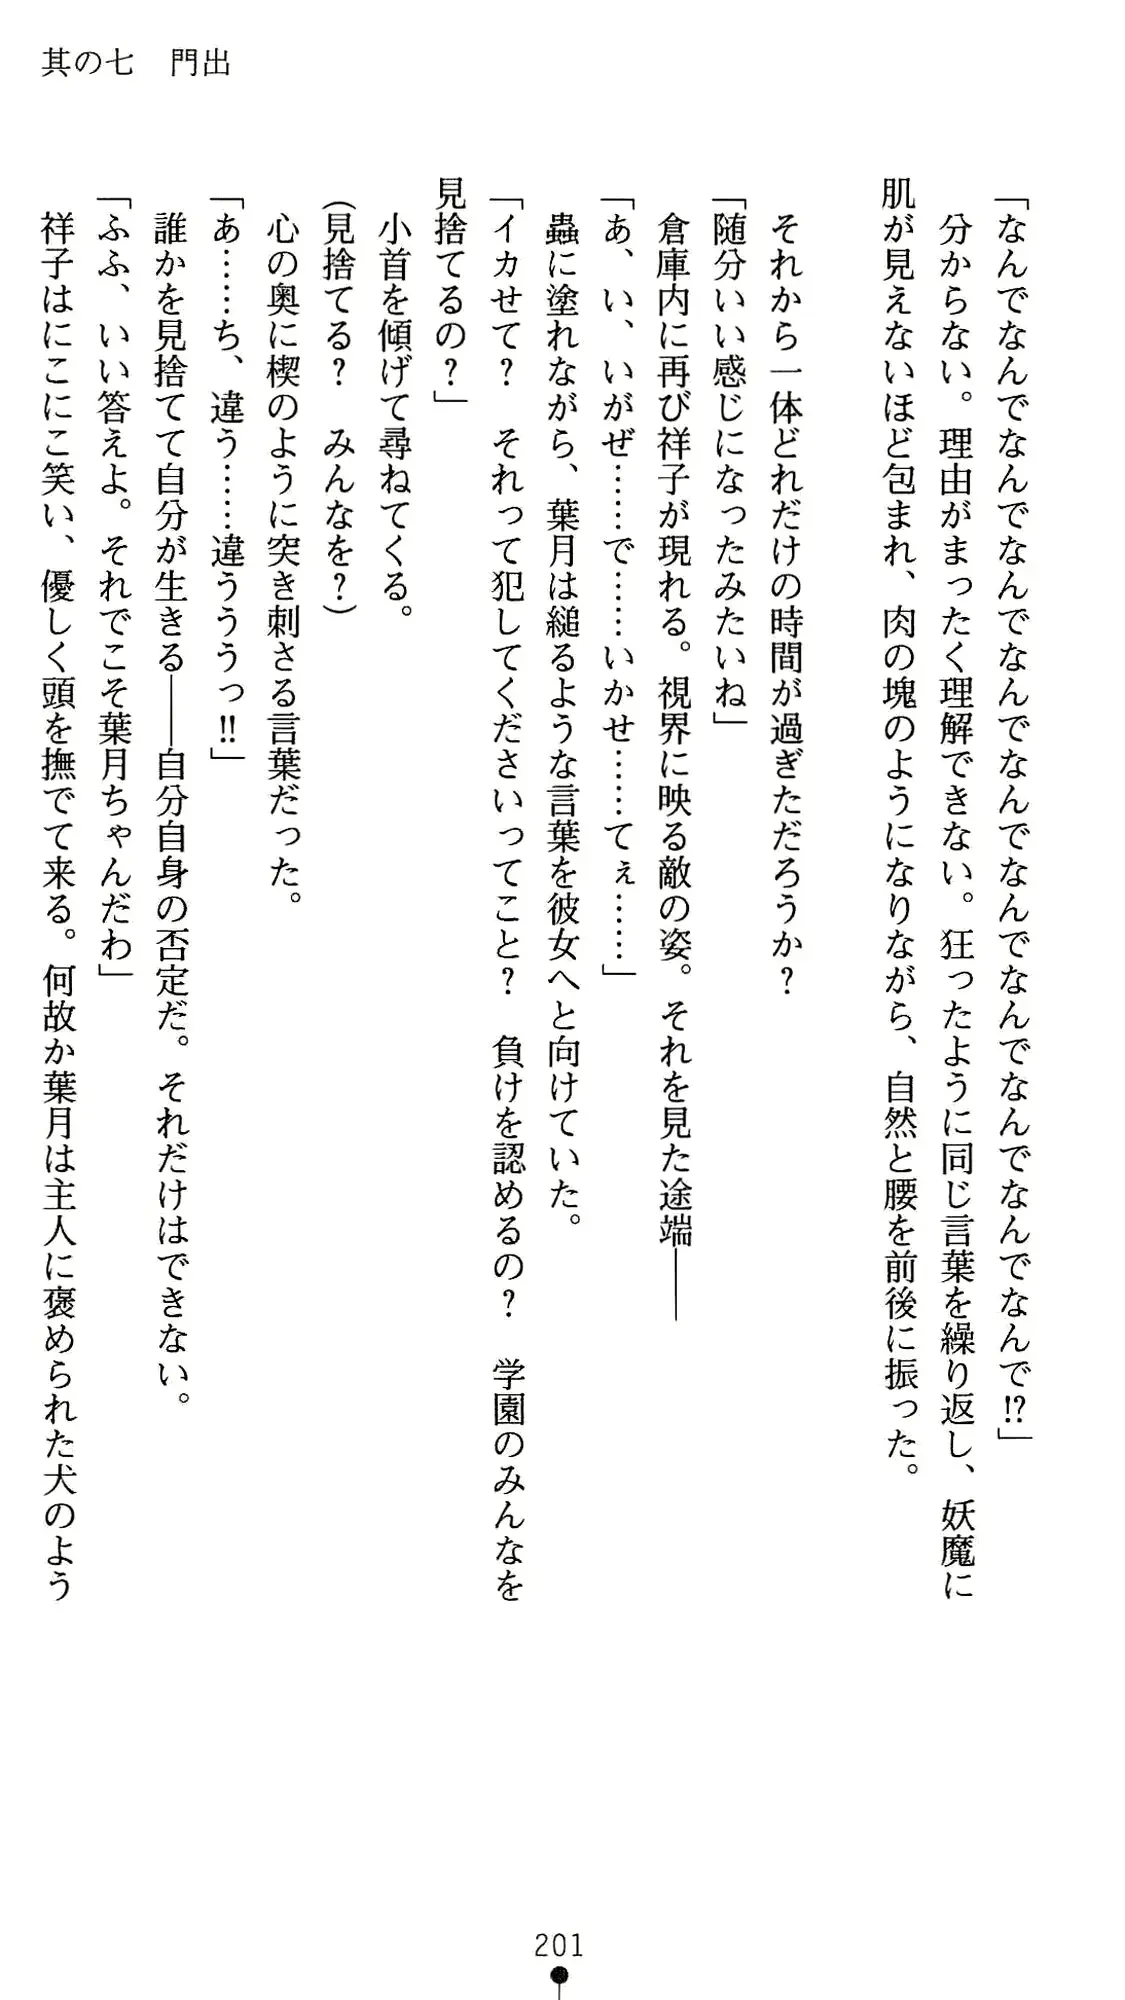 其の七　門出
「なんでなんでなんでなんでなんでなんでなんでなんでなんでなんでなんで!?」
　分からない。理由がまったく理解できない。狂ったように同じ言葉を繰り返し、妖魔に
肌が見えないほど包まれ、肉の塊のようになりながら、自然と腰を前後に振った。
　それから一体どれだけの時間が過ぎただろうか？
「随分いい感じになったみたいね」
　倉庫内に再び祥子が現れる。視界に映る敵の姿。それを見た途端――
「あ、い、いがぜ……で……いかせ……てぇ……」
　蟲に塗れながら、葉月は縋るような言葉を彼女へと向けていた。
「イカせて？　それって犯してくださいってこと？　負けを認めるの？　学園のみんなを
見捨てるの？」
　小首を傾げて尋ねてくる。
（見捨てる？　みんなを？）
　心の奥に楔のように突き刺さる言葉だった。
「あ……ち、違う……違うううっ!!」
　誰かを見捨てて自分が生きる――自分自身の否定だ。それだけはできない。
「ふふ、いい答えよ。それでこそ葉月ちゃんだわ」
　祥子はにこにこ笑い、優しく頭を撫でて来る。何故か葉月は主人に褒められた犬のよう
201